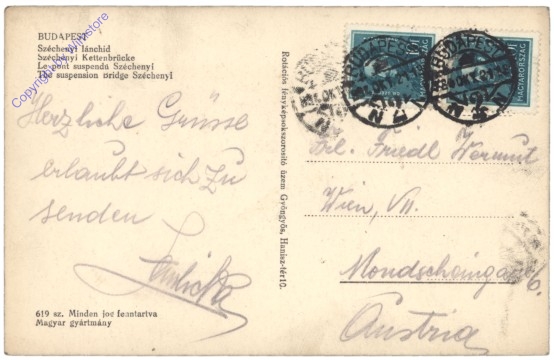 Copyright by Whinstore
BUDAPEST
Széchenyi lánchíd
Széchenyi Kettenbrücke
Le pont suspendu Széchenyi
The suspension bridge Széchenyi
Herzliche Grüsse
erlaubt sich zu
senden
619 sz. Minden jog fenntartva
Magyar gyártmány
Rotációs fényképsokszorosító üzem Gyöngyös, Hanisz-tér 10.
MAGYARORSZÁG
MAGYARORSZÁG
BUDAPEST
BUDAPEST
Frl. Friedl Wermut
Wien, VII.
Mondscheingasse 6.
Austria